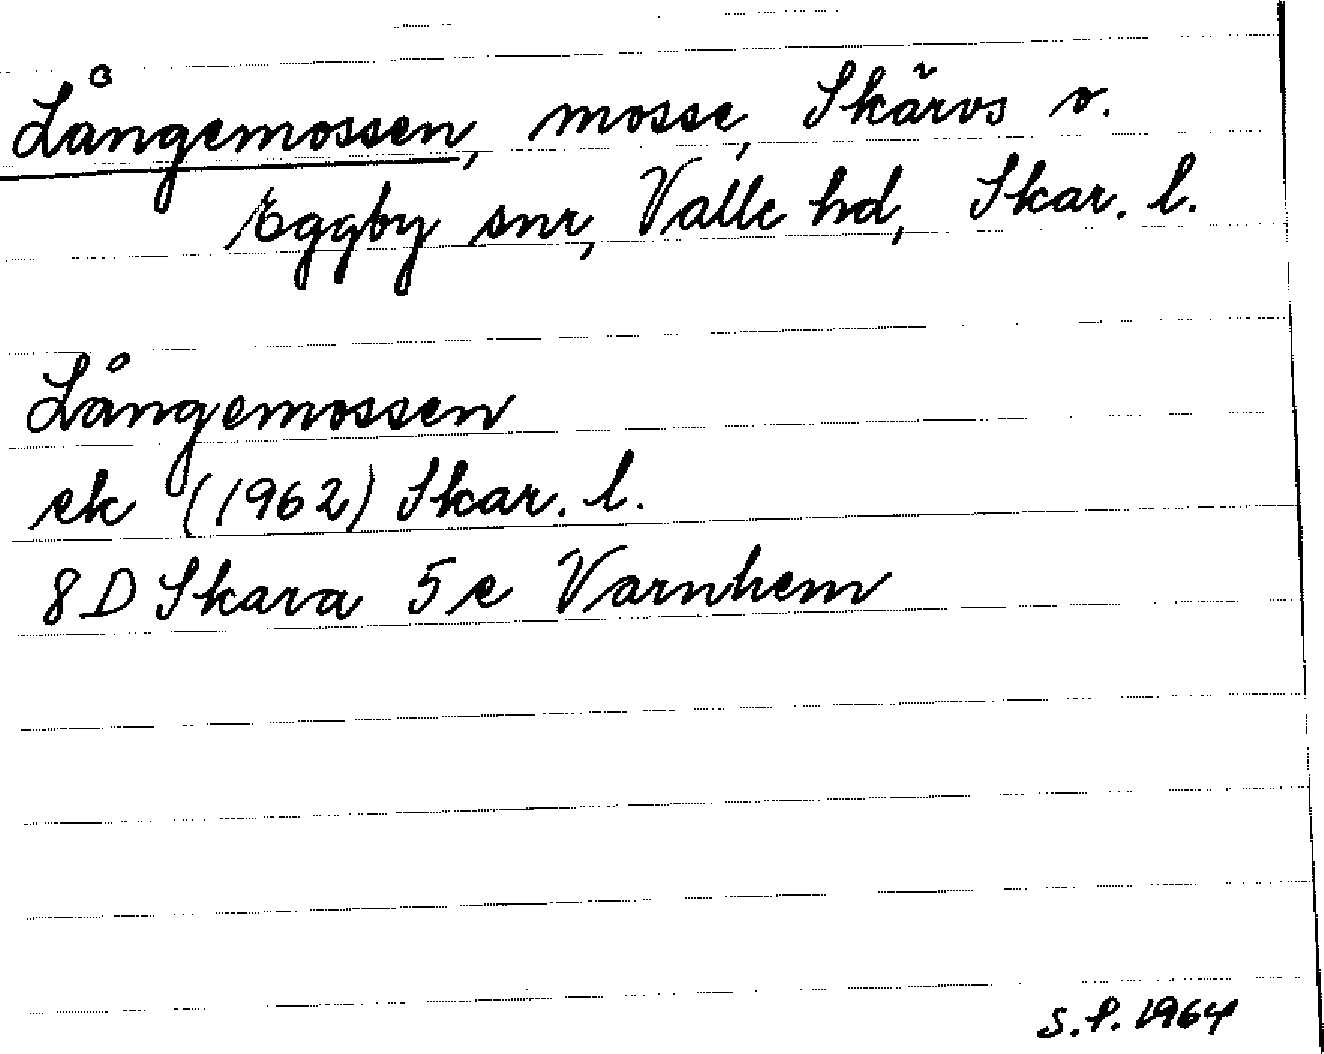 Långemossen, mosse, Skärvs s.
Eggby snr, Valle hd, Skar. l.
Långemossen
ek (1962) Skar. l.
8D Skara 5e Varnhem
S.P. 1964